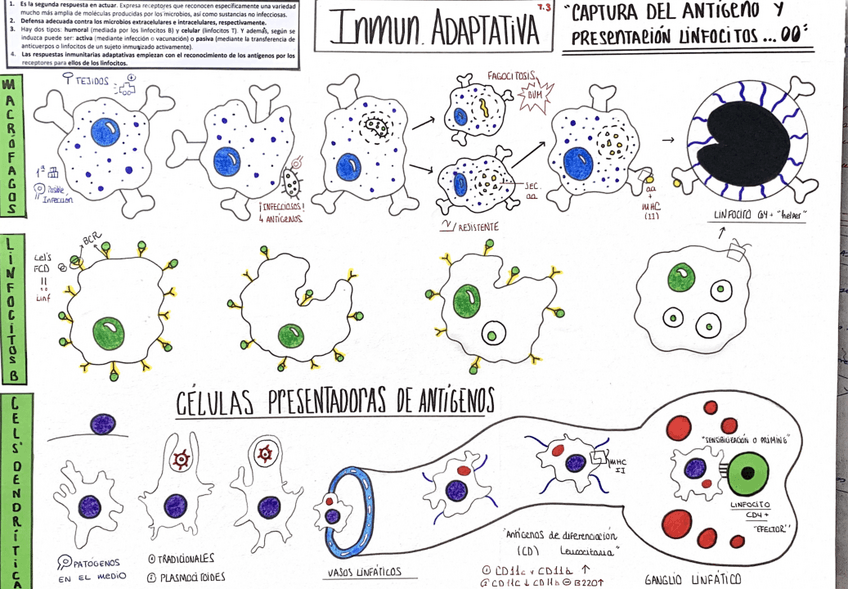 1. Es la segunda respuesta en actuar. Expresa receptores que reconocen específicamente una variedad
mucho más amplia de moléculas producidas por los microbios, así como sustancias no infecciosas.
2. Defensa adecuada contra los microbios extracelulares e intracelulares, respectivamente.
3. Hay dos tipos: humoral (mediada por los linfocitos B) y celular (linfocitos T). Y además, según se
induzca puede ser: activa (mediante infección o vacunación) o pasiva (mediante la transferencia de
anticuerpos o linfocitos de un sujeto inmunizado activamente).
4. Las respuestas inmunitarias adaptativas empiezan con el reconocimiento de los antígenos por los
receptores para ellos de los linfocitos.
INMUN. ADAPTATIVA
7.3
"CAPTURA DEL ANTÍGENO Y
PRESENTACIÓN LINFOCITOS ...
MACRÓFAGOS
TEJIDOS
1ª
Posible
Infección
¡INFECCIOSOS!
4 ANTÍGENOS
FAGOCITOSIS
BUM
SEC.
aa
RESISTENTE
aa
+
MHC
(II)
LINFOCITO CD4+ "helper"
LINFOCITOS B
BCR
Cel's
FCD
Linf
CÉLULAS PRESENTADORAS DE ANTÍGENOS
CELS' DENDRÍTICA
PATÓGENOS
EN EL MEDIO
① TRADICIONALES
② PLASMOCITOIDES
VASOS LINFÁTICOS
MHC
II
"Antígenos de diferenciación
(CD) Leucocitaria"
① CD11c + CD11b ↑
② CD11c ↓ CD11b ⊖ B220↑
"SENSIBILIZACIÓN O PRIMING"
LINFOCITO
CD4+
"EFECTOR"
GANGLIO LINFÁTICO